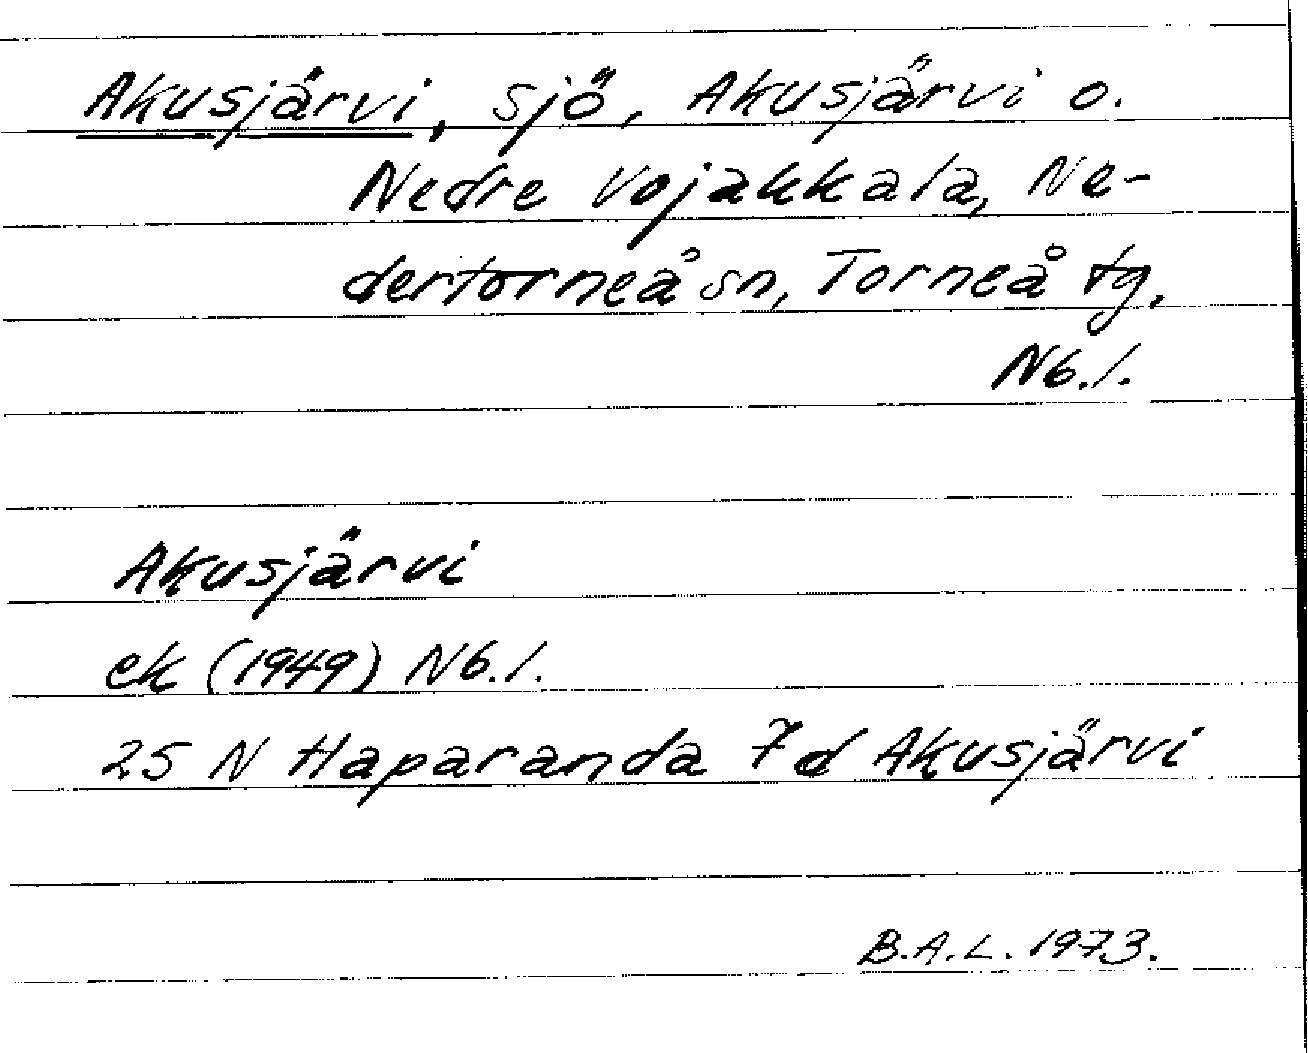 Akusjärvi, sjö, Akusjärvi o.
Nedre Vojakkala, Ne-
dertorneå sn, Torneå tg,
Nb.l.
Akusjärvi
ek (1949) Nb.l.
25 N Haparanda 7d Akusjärvi
B.A.L. 1973.